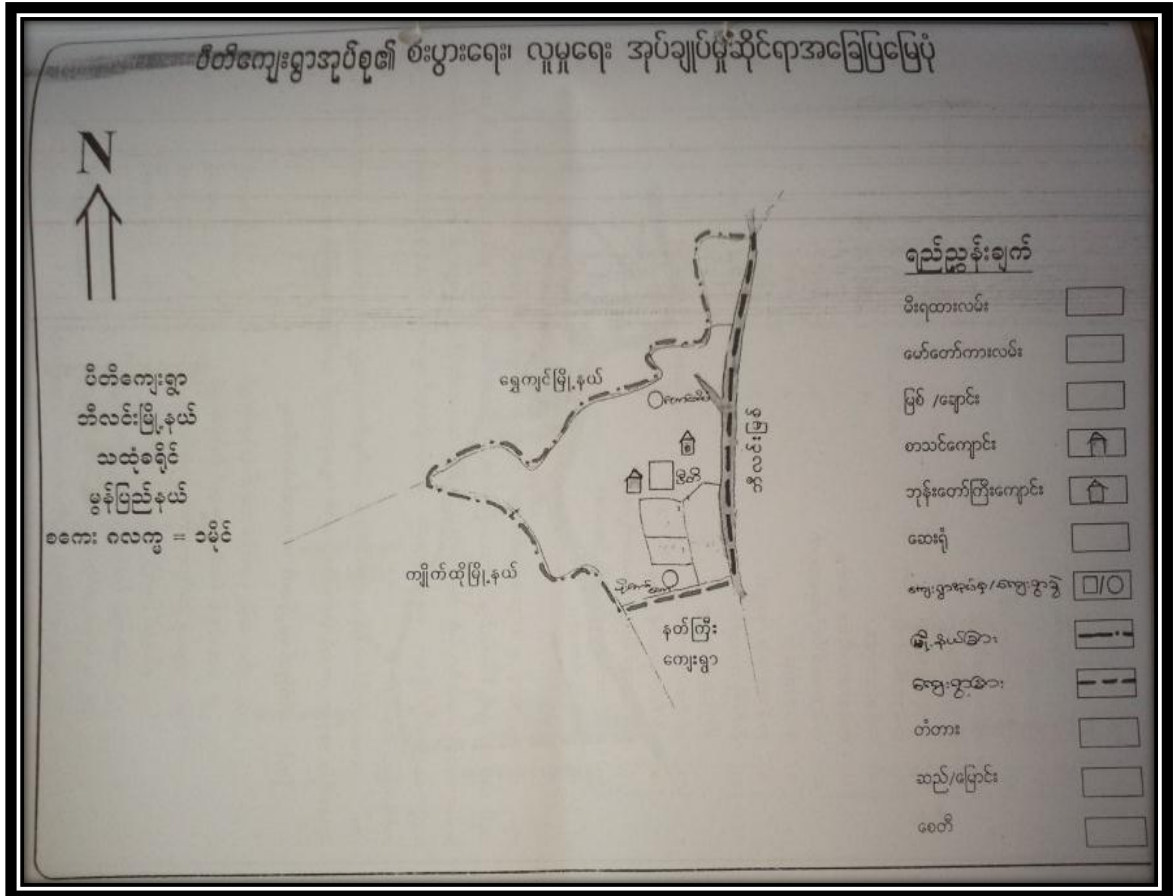 ပီတိကျေးရွာအုပ်စု၏ စီးပွားရေး၊ လူမှုရေး အုပ်ချုပ်မှုဆိုင်ရာအခြေပြမြေပုံ
N
ပီတိကျေးရွာ
ဘီလင်းမြို့နယ်
သထုံခရိုင်
မွန်ပြည်နယ်
စကေး ၈လက္မ = ၁မိုင်
ရွှေကျင်မြို့နယ်
ပီတိ
ဘီလင်းမြစ်
ကျိုက်ထိုမြို့နယ်
နတ်ကြီး
ကျေးရွာ
ရည်ညွှန်းချက်
မီးရထားလမ်း
မော်တော်ကားလမ်း
မြစ် /ချောင်း
စာသင်ကျောင်း
ဘုန်းတော်ကြီးကျောင်း
ဆေးရုံ
ကျေးရွာအုပ်စု/ကျေးရွာခွဲ
မြို့နယ်ခြား
ကျေးရွာခြား
တံတား
ဆည်/မြောင်း
စေတီ